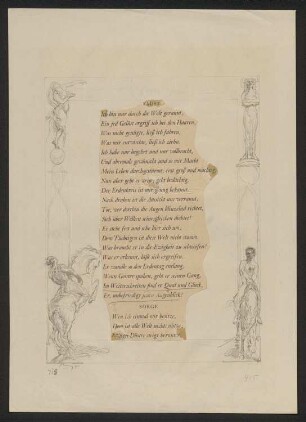 FAUST
Ich bin nur durch die Welt gerannt;
Ein jed' Gelüst ergriff ich bei den Haaren,
Was nicht genügte, ließ ich fahren,
Was mir entwischte, ließ ich ziehn.
Ich habe nur begehrt und nur vollbracht,
Und abermals gewünscht und so mit Macht
Mein Leben durchgestürmt; erst groß und mächtig,
Nun aber geht es weise, geht bedächtig.
Der Erdenkreis ist mir genug bekannt.
Nach drüben ist die Aussicht uns verrannt;
Tor, wer dorthin die Augen blinzelnd richtet,
Sich über Wolken seinesgleichen dichtet!
Er stehe fest und sehe hier sich um;
Dem Tüchtigen ist diese Welt nicht stumm.
Was braucht er in die Ewigkeit zu schweifen!
Was er erkennt, läßt sich ergreifen.
Er wandle so den Erdentag entlang;
Wenn Geister spuken, geh' er seinen Gang,
Im Weiterschreiten find' er Qual und Glück,
Er, unbefriedigt jeden Augenblick!
SORGE
Wen ich einmal mir besitze,
Dem ist alle Welt nichts nütze,
Ewiges Düstre steigt herunter,